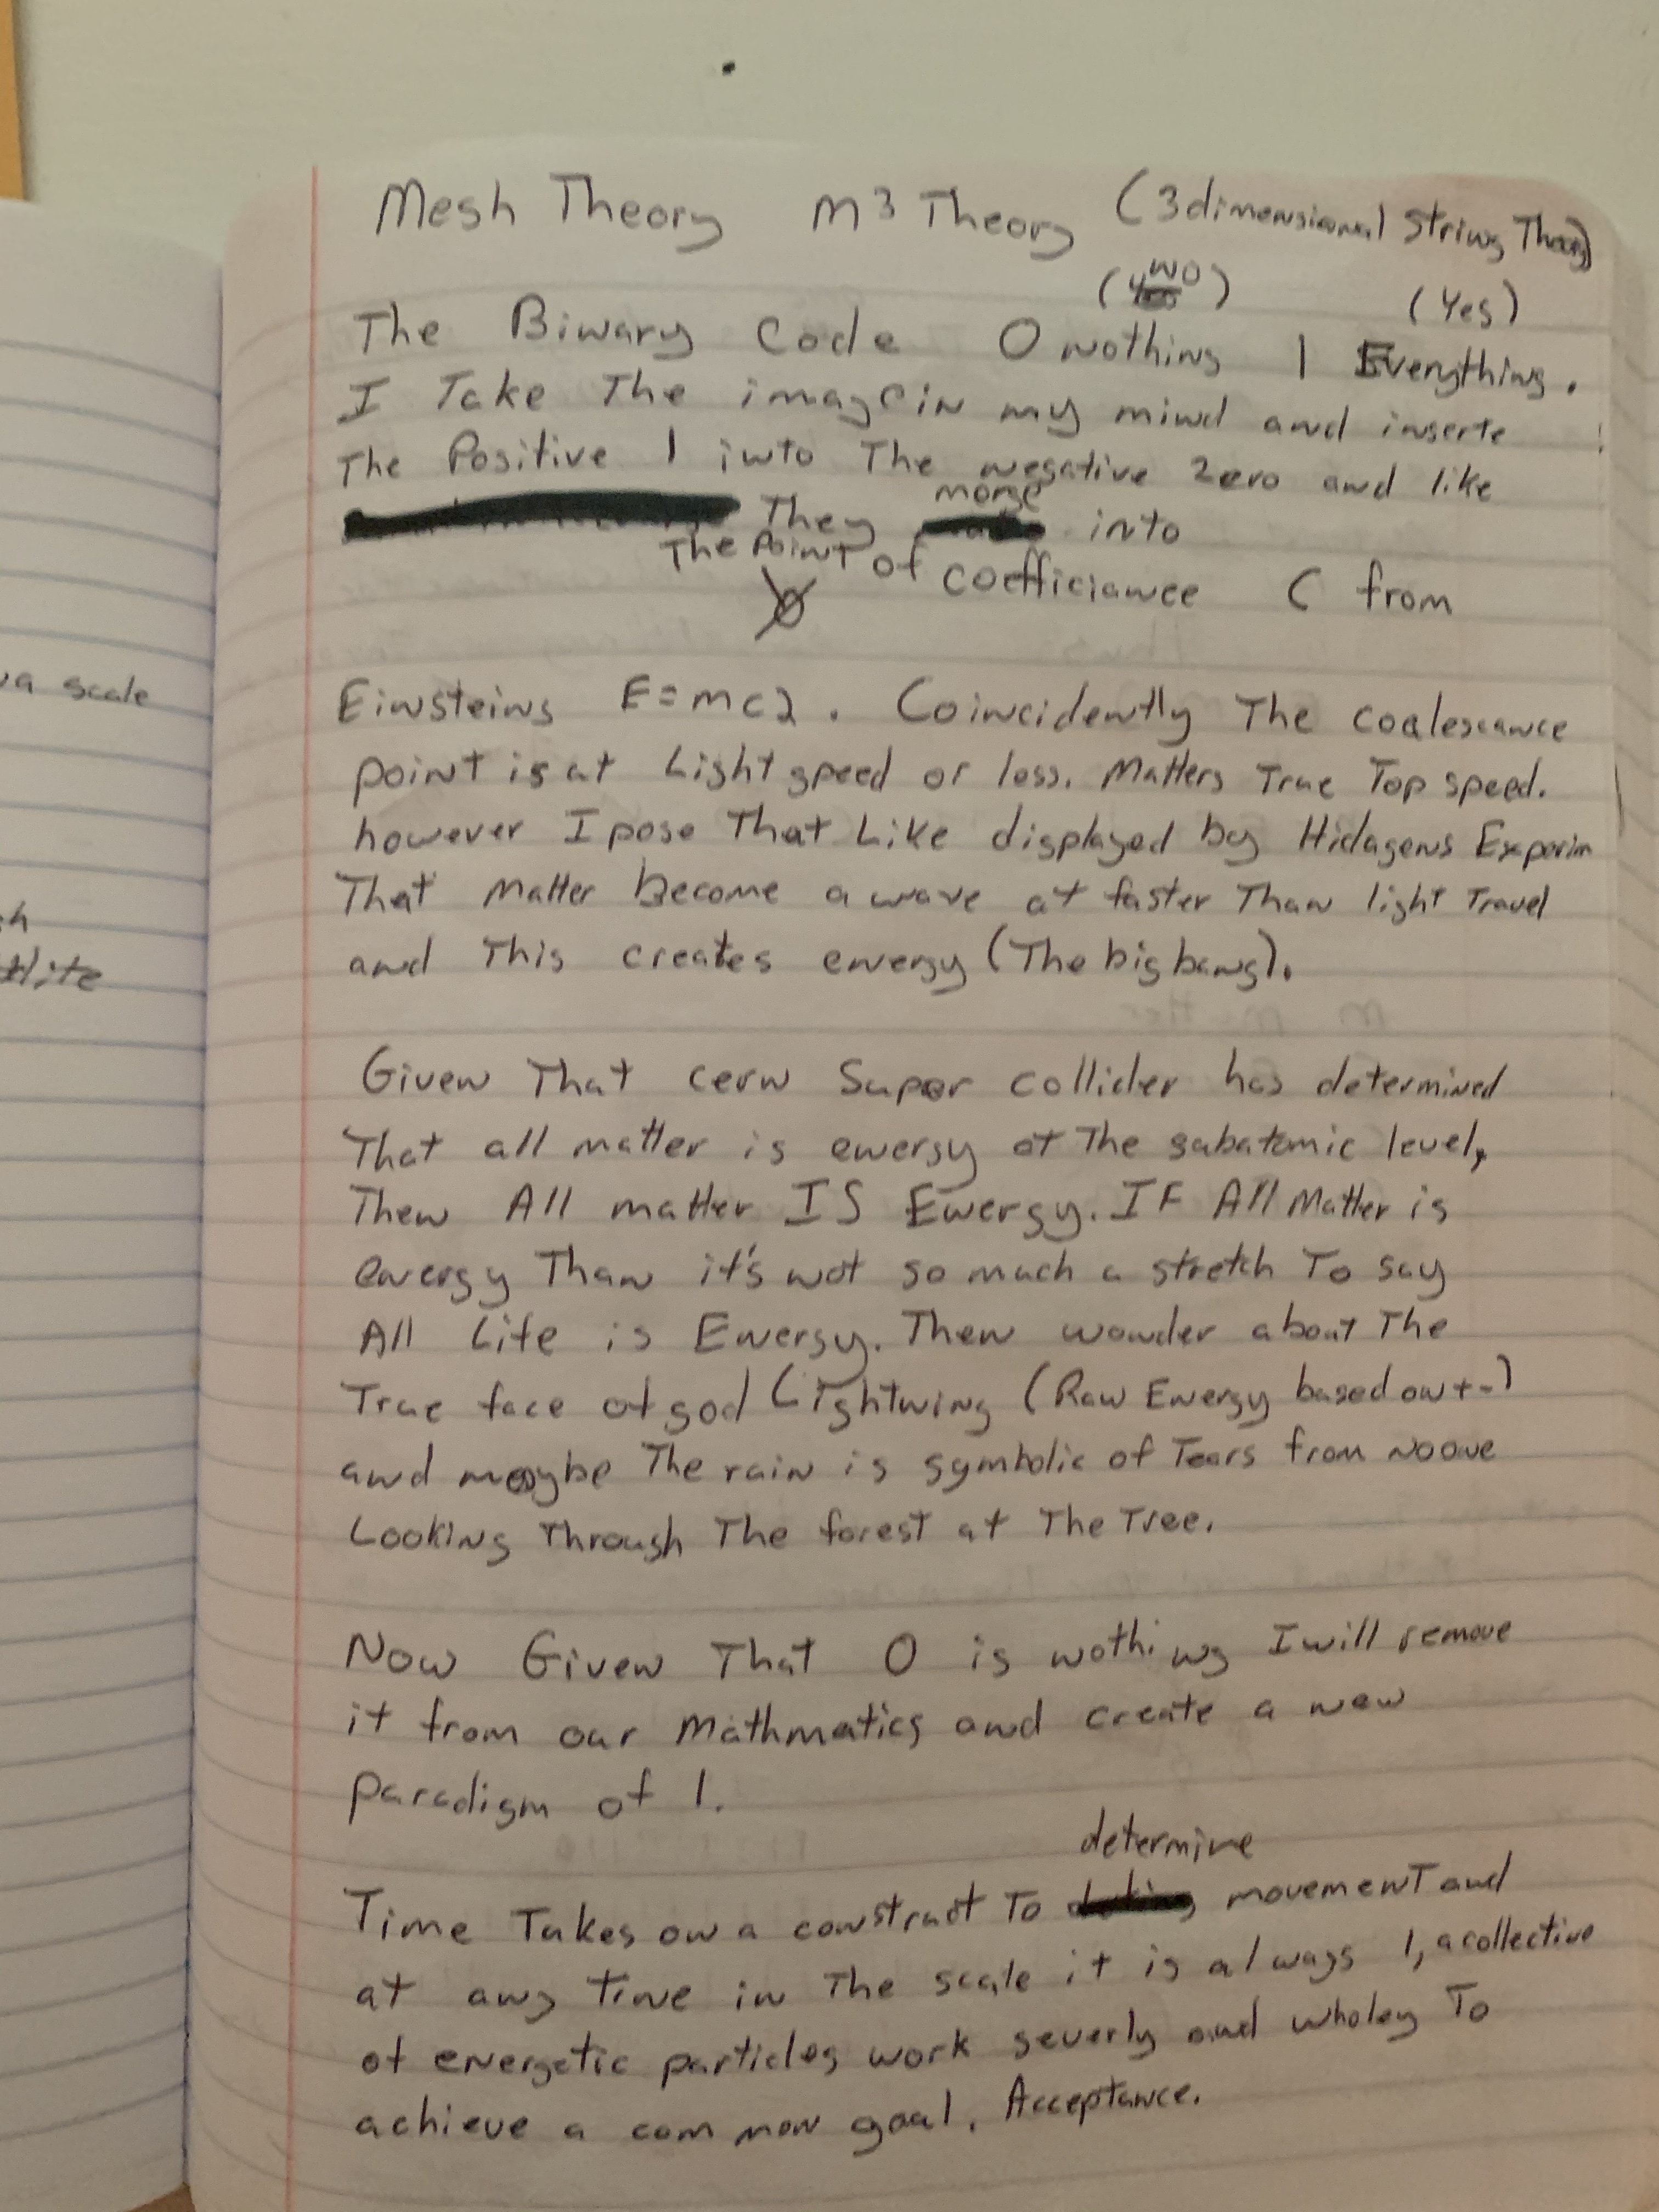 Mesh Theory M3 Theory (3dimensional String Theory)
(NO) (Yes)
The Binary Code 0 nothing 1 Everything.
I Take The image in my mind and inserte
The Positive 1 into The negative Zero and like
They merge into
The Point of coefficiance C from
Einsteins E=mc2. Coincidently The coalescance
point is at Light speed or less. Matters True Top speed.
however I pose That Like displayed by Hidagens Experim
That matter become a wave at faster Than light Travel
and This creates energy (The big bang).
Given That cern Super collider has determined
That all matter is energy at The subatomic level,
Then All matter IS Energy. IF All Matter is
energy Than it's not so much a stretch To say
All Life is Energy. Then wonder about The
True face of god Lightning (Raw Energy based on + -)
and maybe The rain is symbolic of Tears from no one
Looking Through The forest at The Tree.
Now Given That 0 is nothing I will remove
it from our Mathmatics and create a new
paradigm of 1.
determine
Time Takes on a construct To movement and
at any time in The scale it is always 1, a collective
of energetic particles work severly and wholey To
achieve a common goal. Acceptance.
va scale